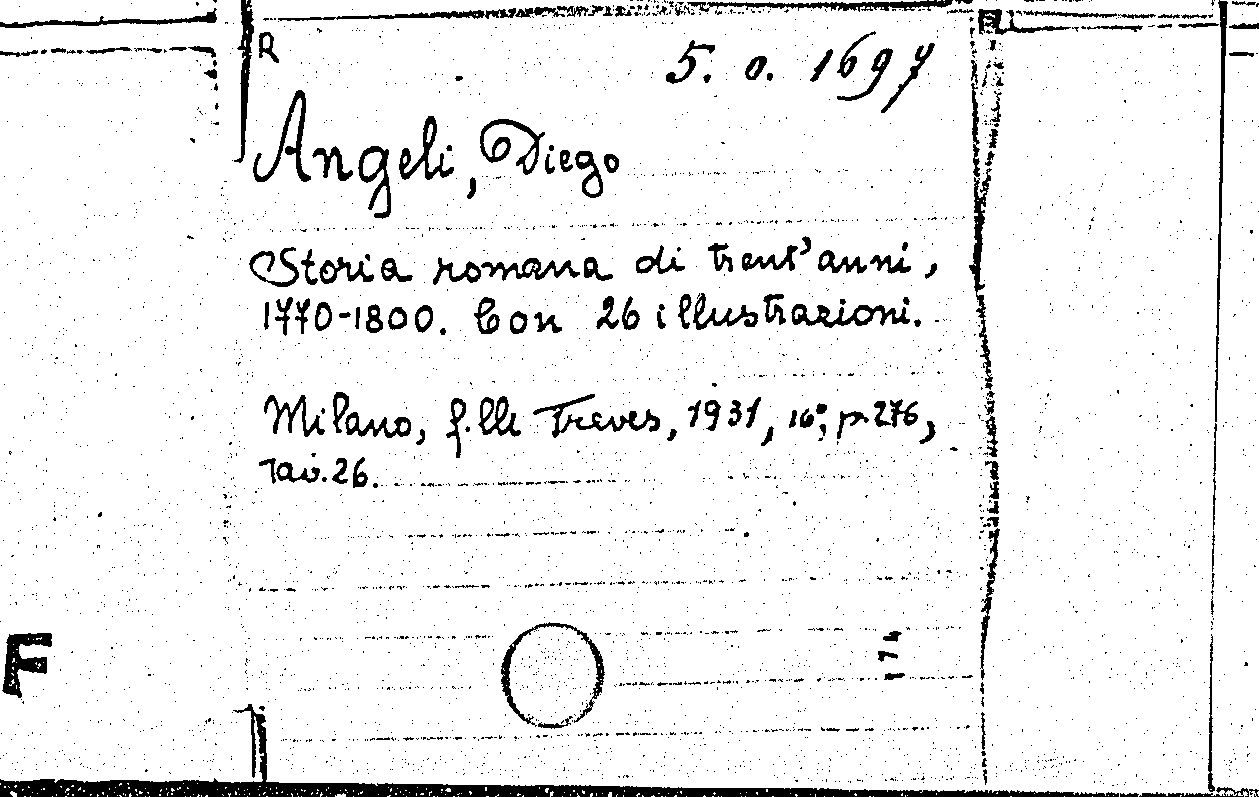 R
5. o. 1697
Angeli, Diego
Storia romana di trent'anni,
1770-1800. Con 26 illustrazioni.
Milano, f.lli Treves, 1931, 16°, p. 276,
tav. 26.
F